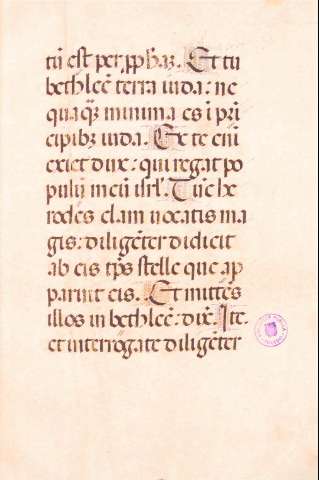 tũ est per ꝓphaȝ. Et tu
bethleẽ terra iuda: ne
quaq̃ȝ minima es i pri
cipibȝ iuda. Ex te eni
exiet dux: qui regat po
pulũ meũ isrl'. Tũc he
rodes clam uocatis ma
gis: diligẽter didicit
ab eis tp̃s stelle que ap
paruit eis. Et mittẽs
illos in bethleẽ: dix̃. Ite.
et interrogate diligẽter